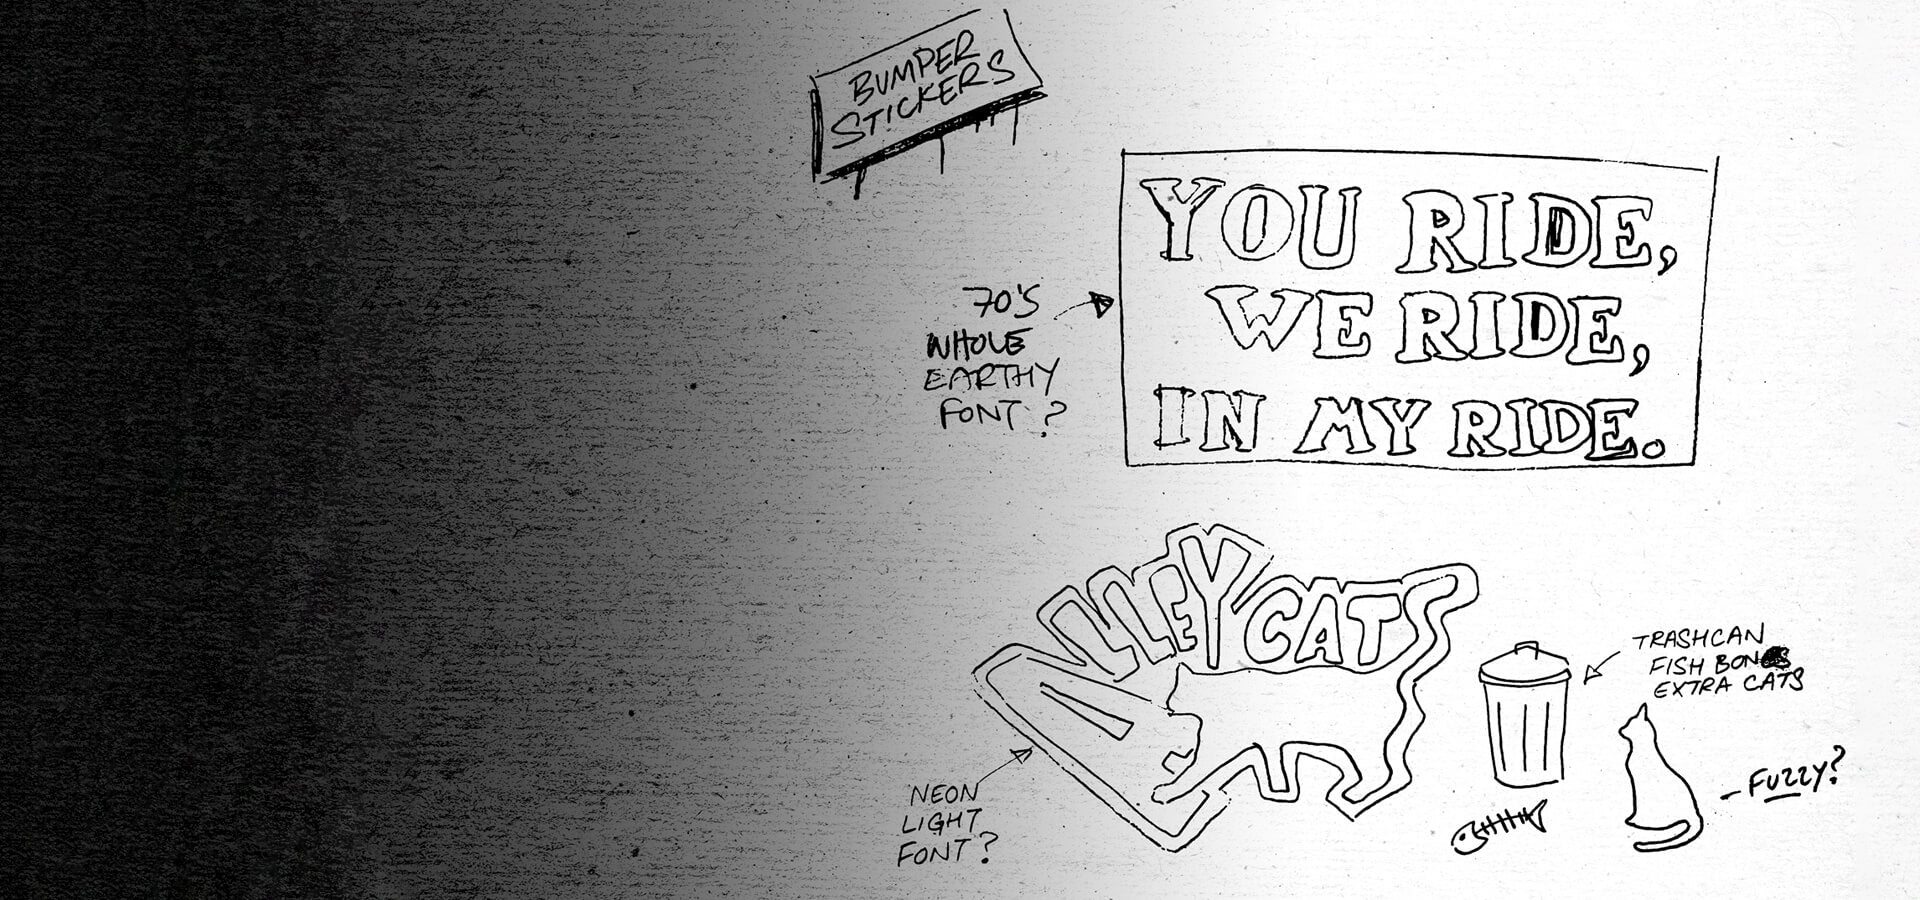 BUMPER
STICKERS
YOU RIDE,
WE RIDE,
IN MY RIDE.
70'S
WHOLE
EARTHY
FONT?
ALLEY CATS
NEON
LIGHT
FONT?
TRASHCAN
FISH BONES
EXTRA CATS
- FUZZY?